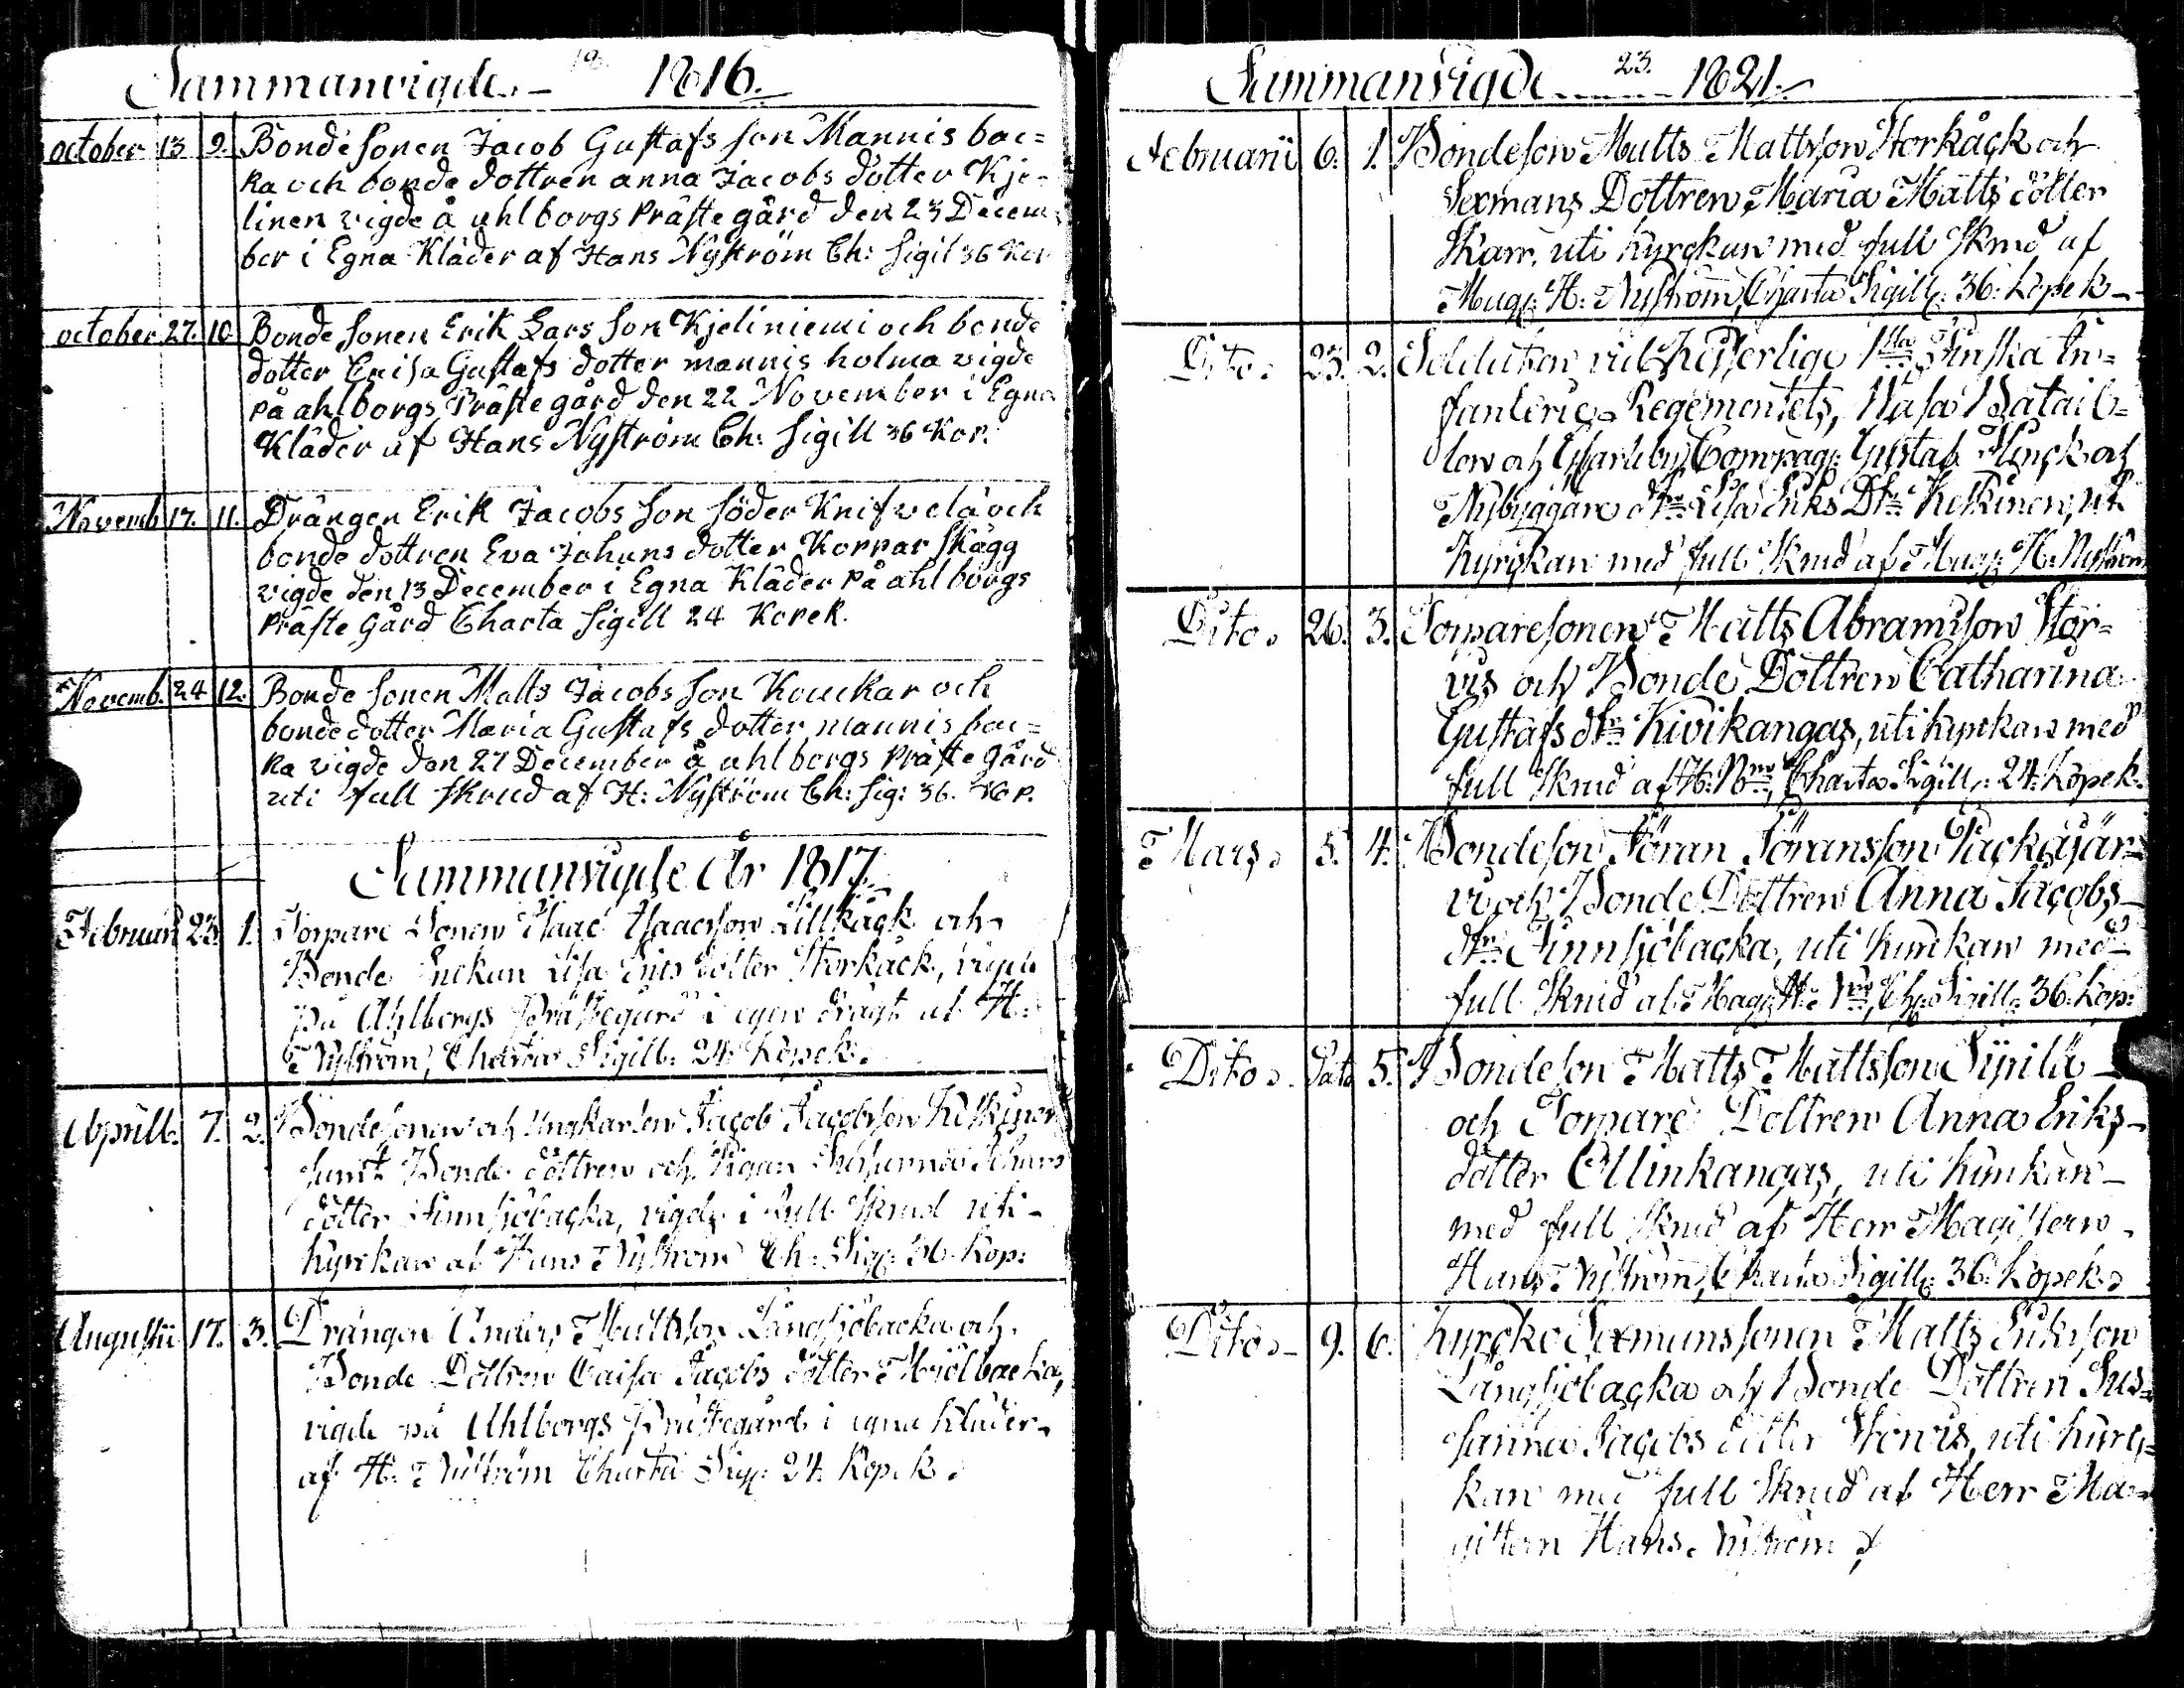 Sammanvigde. – 19. 1816.
october 13 9. Bonde sonen Jacob Gustafs son Mannis bac=
ka och bonde dottren anna Jacobs dotter Kje-
linen vigde å ahlborgs Präste gård den 23 Decem
ber i Egna Kläder af Hans Nyström Ch: Sigil 36 Kop
october 27. 10. Bonde sonen Erik Lars son Kjeliniemi och bonde
dotter Caisa Gustafs dotter mannis holma vigde
på ahlborgs Präste gård den 22 November i Egna
Kläder af Hans Nyström Ch: Sigill 36 Kop.
Novemb. 17. 11. Drängen Erik Jacobs son söder Knifvelä och
bonde dottren Eva Johans dotter Korpar skägg
vigde den 13 December i Egna Kläder På ahlborgs
Präste Gård Charta Sigill 24 Kopek.
Novemb. 24 12. Bonde sonen Matts Jacobs son Kouckar och
bonde dotter Maria Gustafs dotter mannis bac=
ka vigde den 27 December å ahlborgs Präste Gård
uti full skrud af H: Nyström Ch: Sig: 36. Kop.
Sammanvigde År 1817.
Februarii 23. 1. Torpare Sonen Isaac Isaacsson Lillkåck och
Bonde Enckan Lisa Eries dotter Storkåck, vigde
på Ahlborgs Prästegård i egen drägt af H:
Nyström, Charta Sigill: 24: Kopek.
Aprill. 7. 2. Bondesonen och Ungkarlen Jacob Jacobsson Keskinen
samt Bonde dottren och Pigan Susanna Johans
dotter Finnsjöbacka, vigde i full skrud uti
kyrckan af Hans Nyström Ch. Sig: 36. Kop:
Augustii 17. 3. Drängen Anders Mattsson Långsjöbacka och
Bonde Dottren Caisa Jacobs dotter Mjölbacka,
vigde på Ahlborgs Prästegård i egna kläder
af H. Nyström Charta Sig: 24. Kopek.
Sammanvigde 23. 1821.
Februarii 6. 1. Bondeson Matts Mattsson Storkåck och
Sexmans Dottren Maria Matts dotter
Skarr. uti kyrckan med full Skrud af
Mag: H: Nyström, Charta Sigill: 36: kopek
Dito. 23. 2. Soldaten vid Kejserlige 1sta Finska In=
fanterie Regementets, Wasa Batail=
lon och Gamlebÿ Compag: Gustaf Flinck och
Nybÿggare dtr Lisa Eriks Dtr Keskinen, uti
kyrckan med full Skrud af Mag: H: Nyström
Dito. 26. 3. Torparesonen Matts Abramsson Stor=
vis och Bonde Dottren Catharina
Gustafs dtr Kivikangas, uti kyrckan med
full Skrud af H: Nm, Charta Sigill: 24: Kopek.
Mars. 5. 4. Bondeson Jöran Jöransson Packajär=
vi och Bonde Dottren Anna Jacobs
dtr Finnsjöbacka, uti kyrckan med
full Skrud af Mag: H: Nm, Ch: Sigill: 36: Kop:
Dito. Dato 5. Bondeson Matts Mattsson Sÿpilä
och Torpare Dottren Anna Eriks
dotter Ollinkangas, uti kyrckan
med full Skrud af Herr Magistern
Hans Nyström, Charta Sigill: 36: Kopek.
Dito. 9. 6. Kyrcko Sexmanssonen Matts Eriksson
Långsjöbacka och Bonde Dottren Sus=
sanna Jacobs dotter Storvis, uti kyrc=
kan med full Skrud af Herr Ma=
gistern Hans Nyström